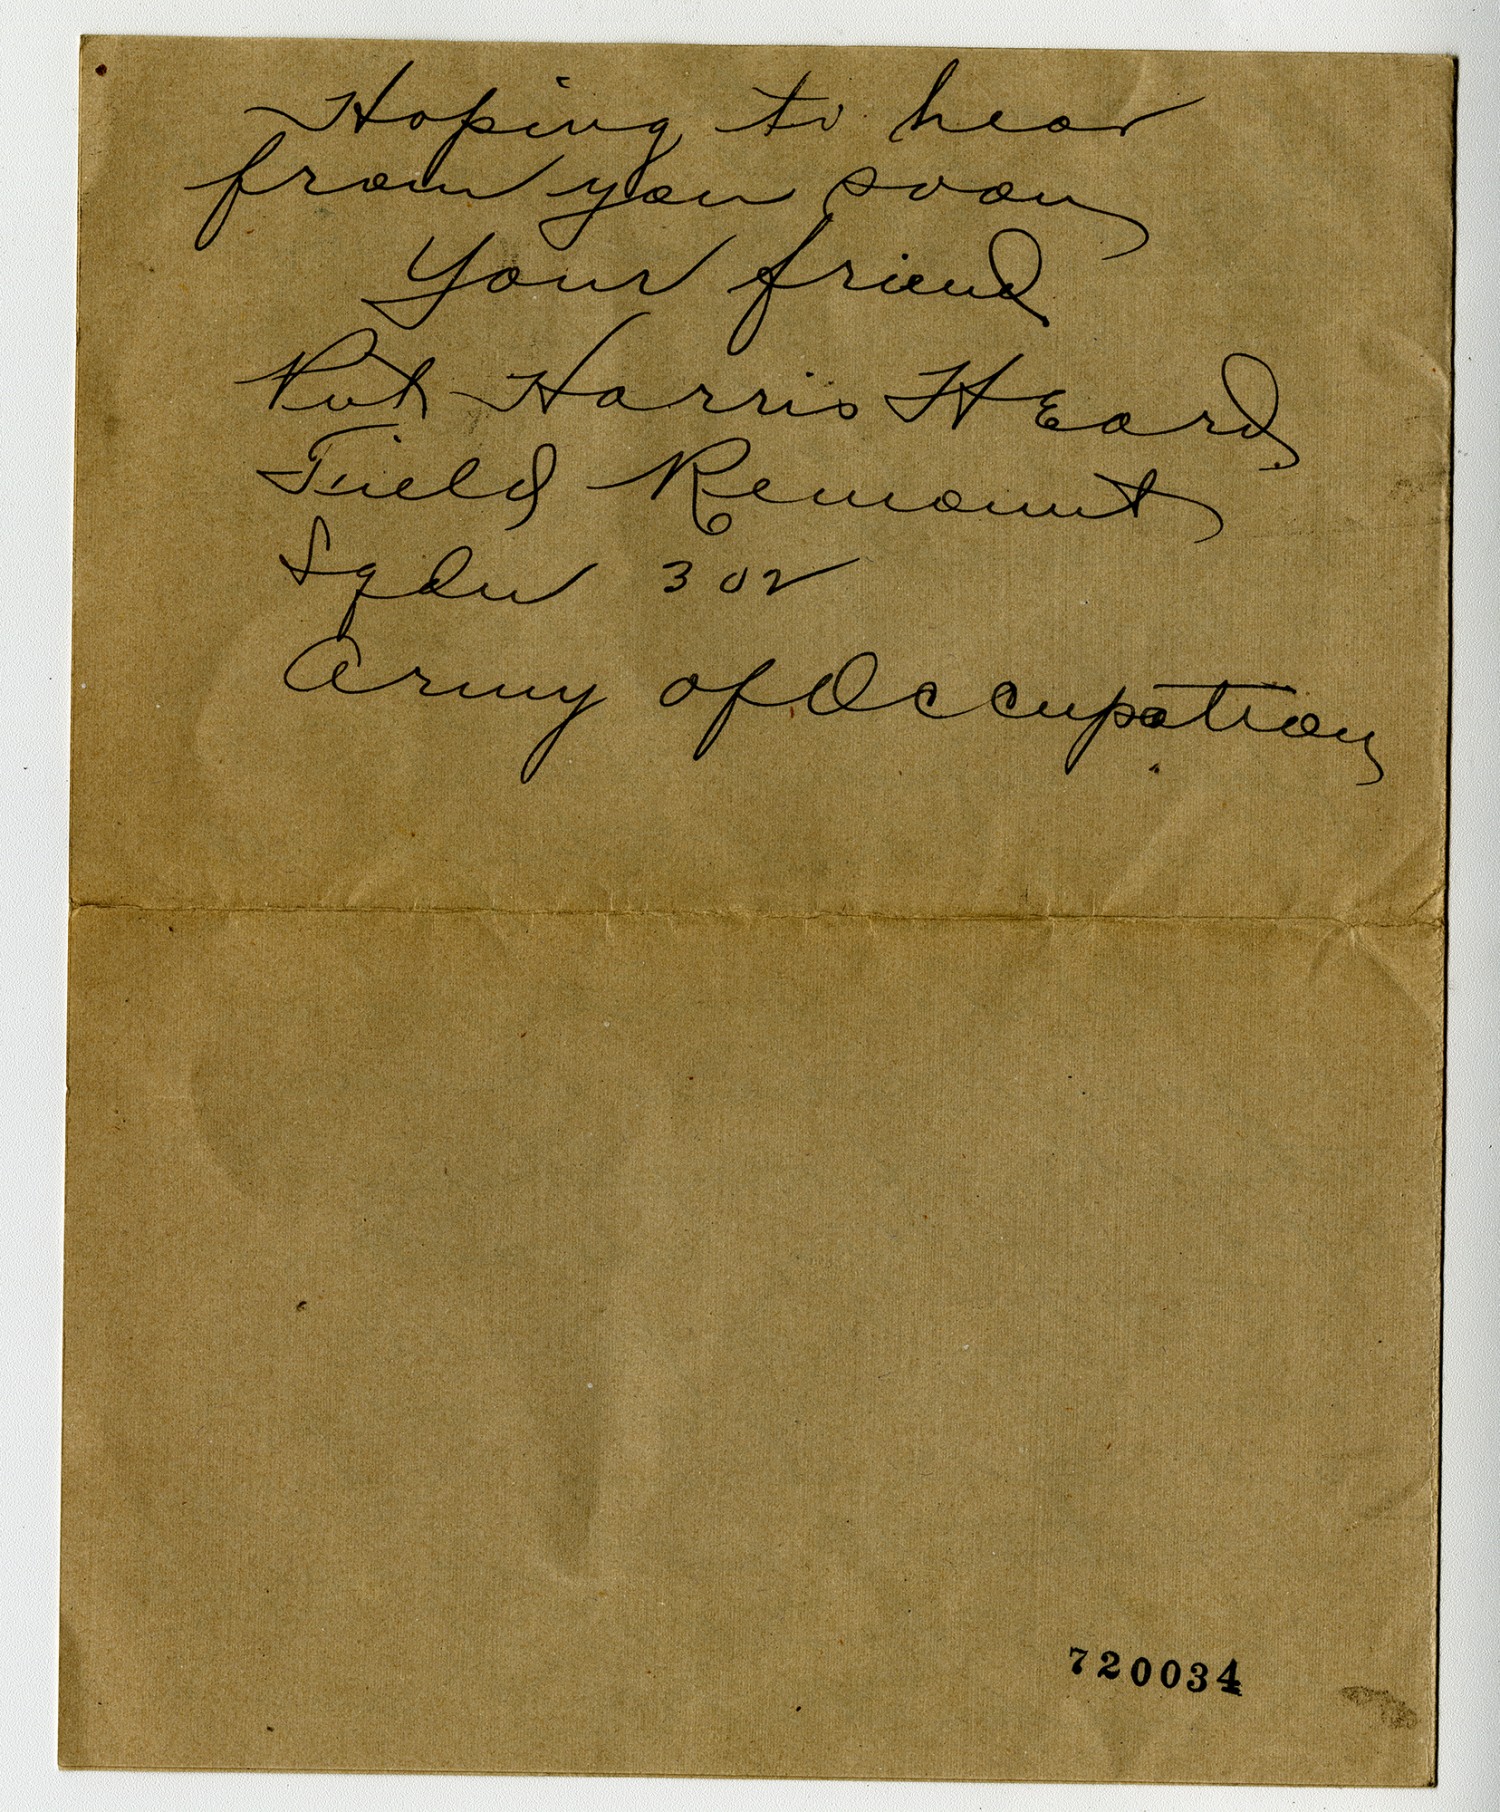 Hoping to hear
from you soon
Your friend
Pvt Harris Heard
Field Remount
Sqdn 302
Army of Occupation
720034